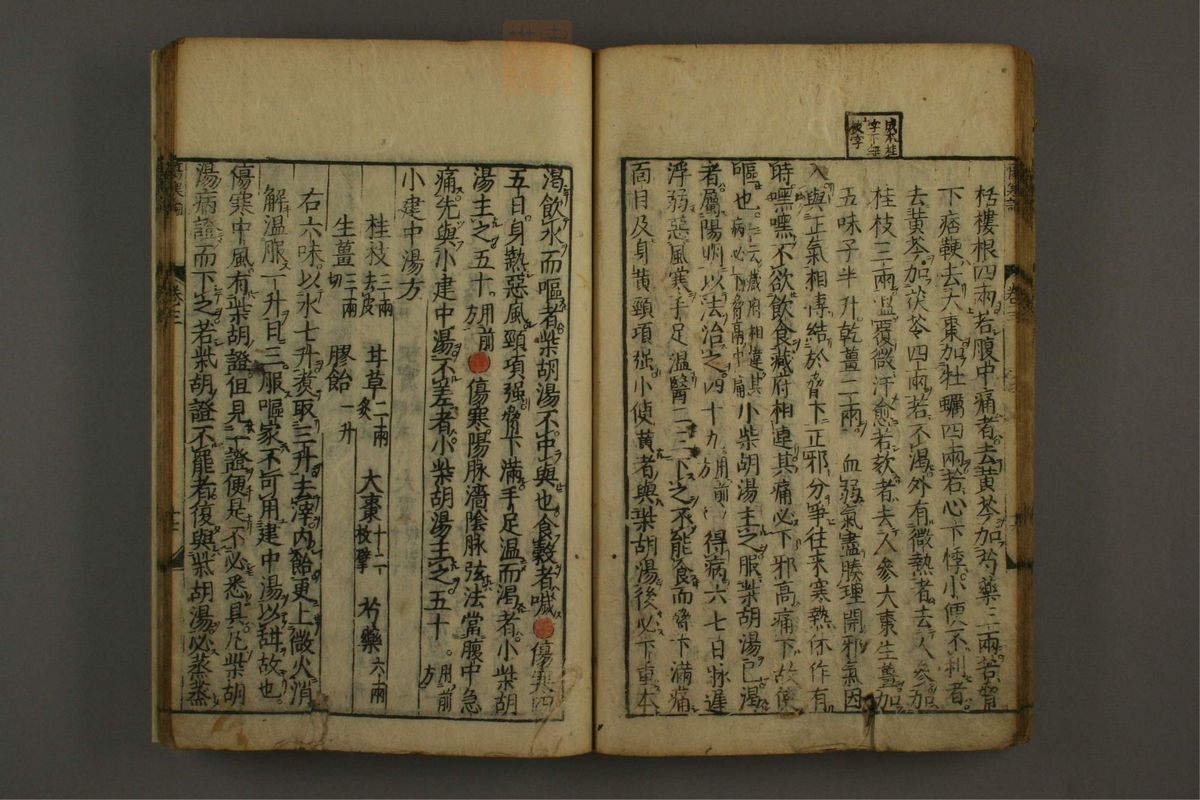 成本桂
字下無
枝字
栝樓根四兩若腹中痛者去黃芩加芍藥三兩若脅
下痞鞕去大棗加牡蠣四兩若心下悸小便不利者
去黃芩加茯苓四兩若不渴外有微熱者去人參加
桂枝三兩溫覆微汗愈若欬者去人參大棗生薑加
五味子半升乾薑二兩 血弱氣盡腠理開邪氣因
入與正氣相摶結於脅下正邪分爭往來寒熱休作有
時嘿嘿不欲飲食藏府相連其痛必下邪高痛下故使
嘔也一云藏府相違其病必下脅鬲中痛小柴胡湯主之服柴胡湯已渴
者屬陽明以法治之四十九用前方 得病六七日脉遲
浮弱惡風寒手足溫醫二三下之不能食而脅下滿痛
面目及身黃頸項强小便黃者與柴胡湯後必下重本
渴飲水而嘔者柴胡湯不中與也食穀者噦 傷寒四
五日身熱惡風頸項强脅下滿手足溫而渴者小柴胡
湯主之五十用前方 傷寒陽脉濇陰脉弦法當腹中急
痛先與小建中湯不差者小柴胡湯主之五十一用前方
小建中湯方
桂枝三兩去皮 甘草二兩炙 大棗十二枚擘 芍藥六兩
生薑三兩切 膠飴一升
右六味以水七升煮取三升去滓內飴更上微火消
解溫服一升日三服嘔家不可用建中湯以甜故也
傷寒中風有柴胡證但見一證便是不必悉具凡柴胡
湯病證而下之若柴胡證不罷者復與柴胡湯必蒸蒸
傷寒論
卷三